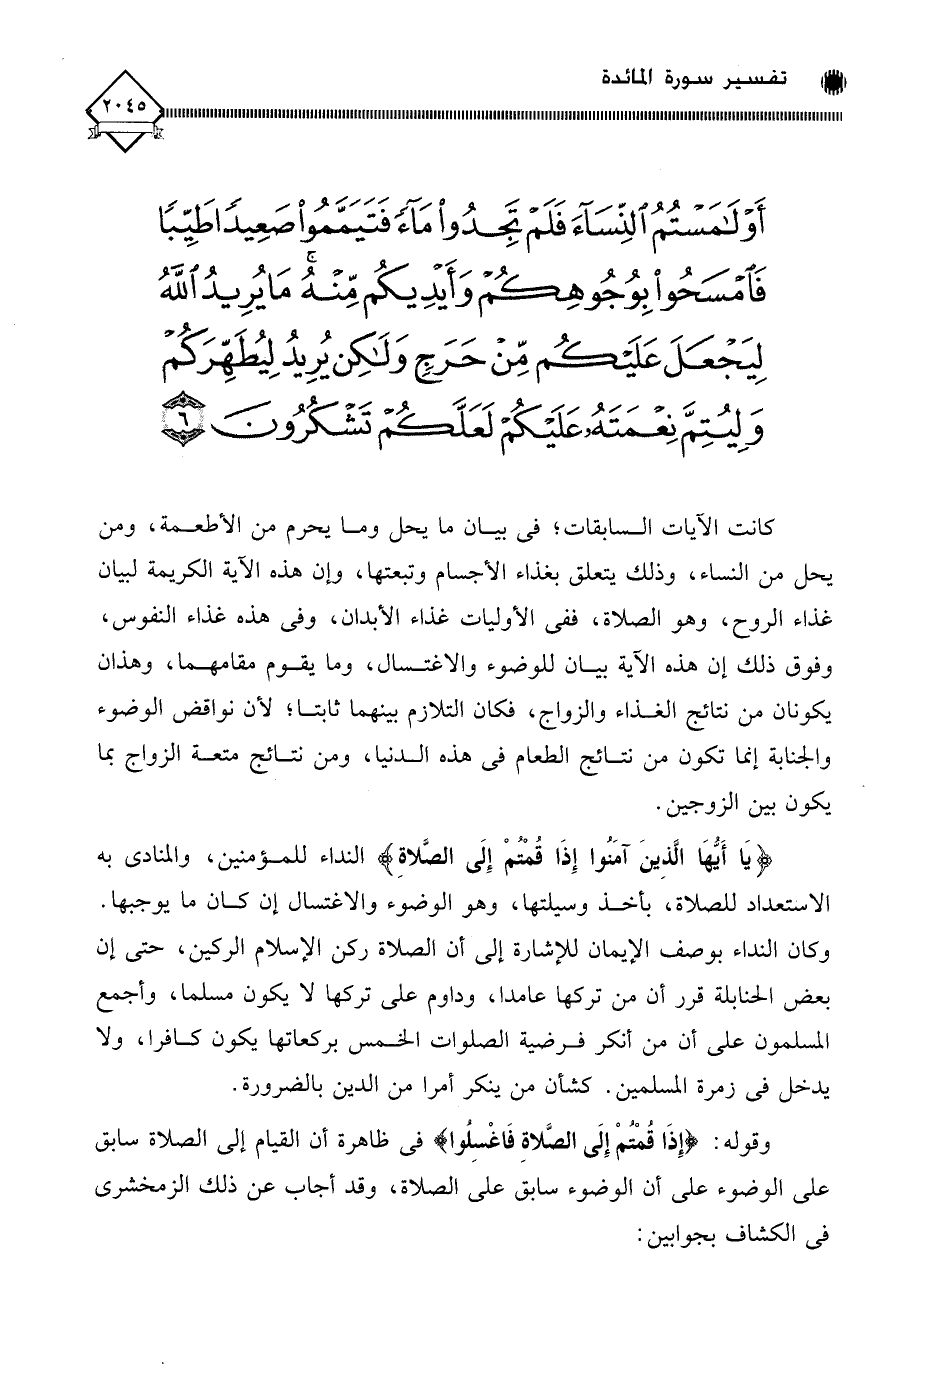 تفسير سورة المائدة
٢٠٤٥
أَوْ لَٰمَسْتُمُ ٱلنِّسَآءَ فَلَمْ تَجِدُوا۟ مَآءً فَتَيَمَّمُوا۟ صَعِيدًا طَيِّبًا
فَٱمْسَحُوا۟ بِوُجُوهِكُمْ وَأَيْدِيكُم مِّنْهُ ۚ مَا يُرِيدُ ٱللَّهُ
لِيَجْعَلَ عَلَيْكُم مِّنْ حَرَجٍ وَلَٰكِن يُرِيدُ لِيُطَهِّرَكُمْ
وَلِيُتِمَّ نِعْمَتَهُۥ عَلَيْكُمْ لَعَلَّكُمْ تَشْكُرُونَ ٦
كانت الآيات السابقات؛ فى بيان ما يحل وما يحرم من الأطعمة، ومن
يحل من النساء، وذلك يتعلق بغذاء الأجسام وتبعتها، وإن هذه الآية الكريمة لبيان
غذاء الروح، وهو الصلاة، ففى الأوليات غذاء الأبدان، وفى هذه غذاء النفوس،
وفوق ذلك إن هذه الآية بيان للوضوء والاغتسال، وما يقوم مقامهما، وهذان
يكونان من نتائج الغذاء والزواج، فكان التلازم بينهما ثابتا؛ لأن نواقض الوضوء
والجنابة إنما تكون من نتائج الطعام فى هذه الدنيا، ومن نتائج متعة الزواج بما
يكون بين الزوجين.
﴿يَا أَيُّهَا الَّذِينَ آمَنُوا إِذَا قُمْتُمْ إِلَى الصَّلاةِ﴾ النداء للمؤمنين، والمنادى به
الاستعداد للصلاة، بأخذ وسيلتها، وهو الوضوء والاغتسال إن كان ما يوجبها.
وكان النداء بوصف الإيمان للإشارة إلى أن الصلاة ركن الإسلام الركين، حتى إن
بعض الحنابلة قرر أن من تركها عامدا، وداوم على تركها لا يكون مسلما، وأجمع
المسلمون على أن من أنكر فرضية الصلوات الخمس بركعاتها يكون كافرا، ولا
يدخل فى زمرة المسلمين. كشأن من ينكر أمرا من الدين بالضرورة.
وقوله: ﴿إِذَا قُمْتُمْ إِلَى الصَّلاةِ فَاغْسِلُوا﴾ فى ظاهرة أن القيام إلى الصلاة سابق
على الوضوء على أن الوضوء سابق على الصلاة، وقد أجاب عن ذلك الزمخشرى
فى الكشاف بجوابين: